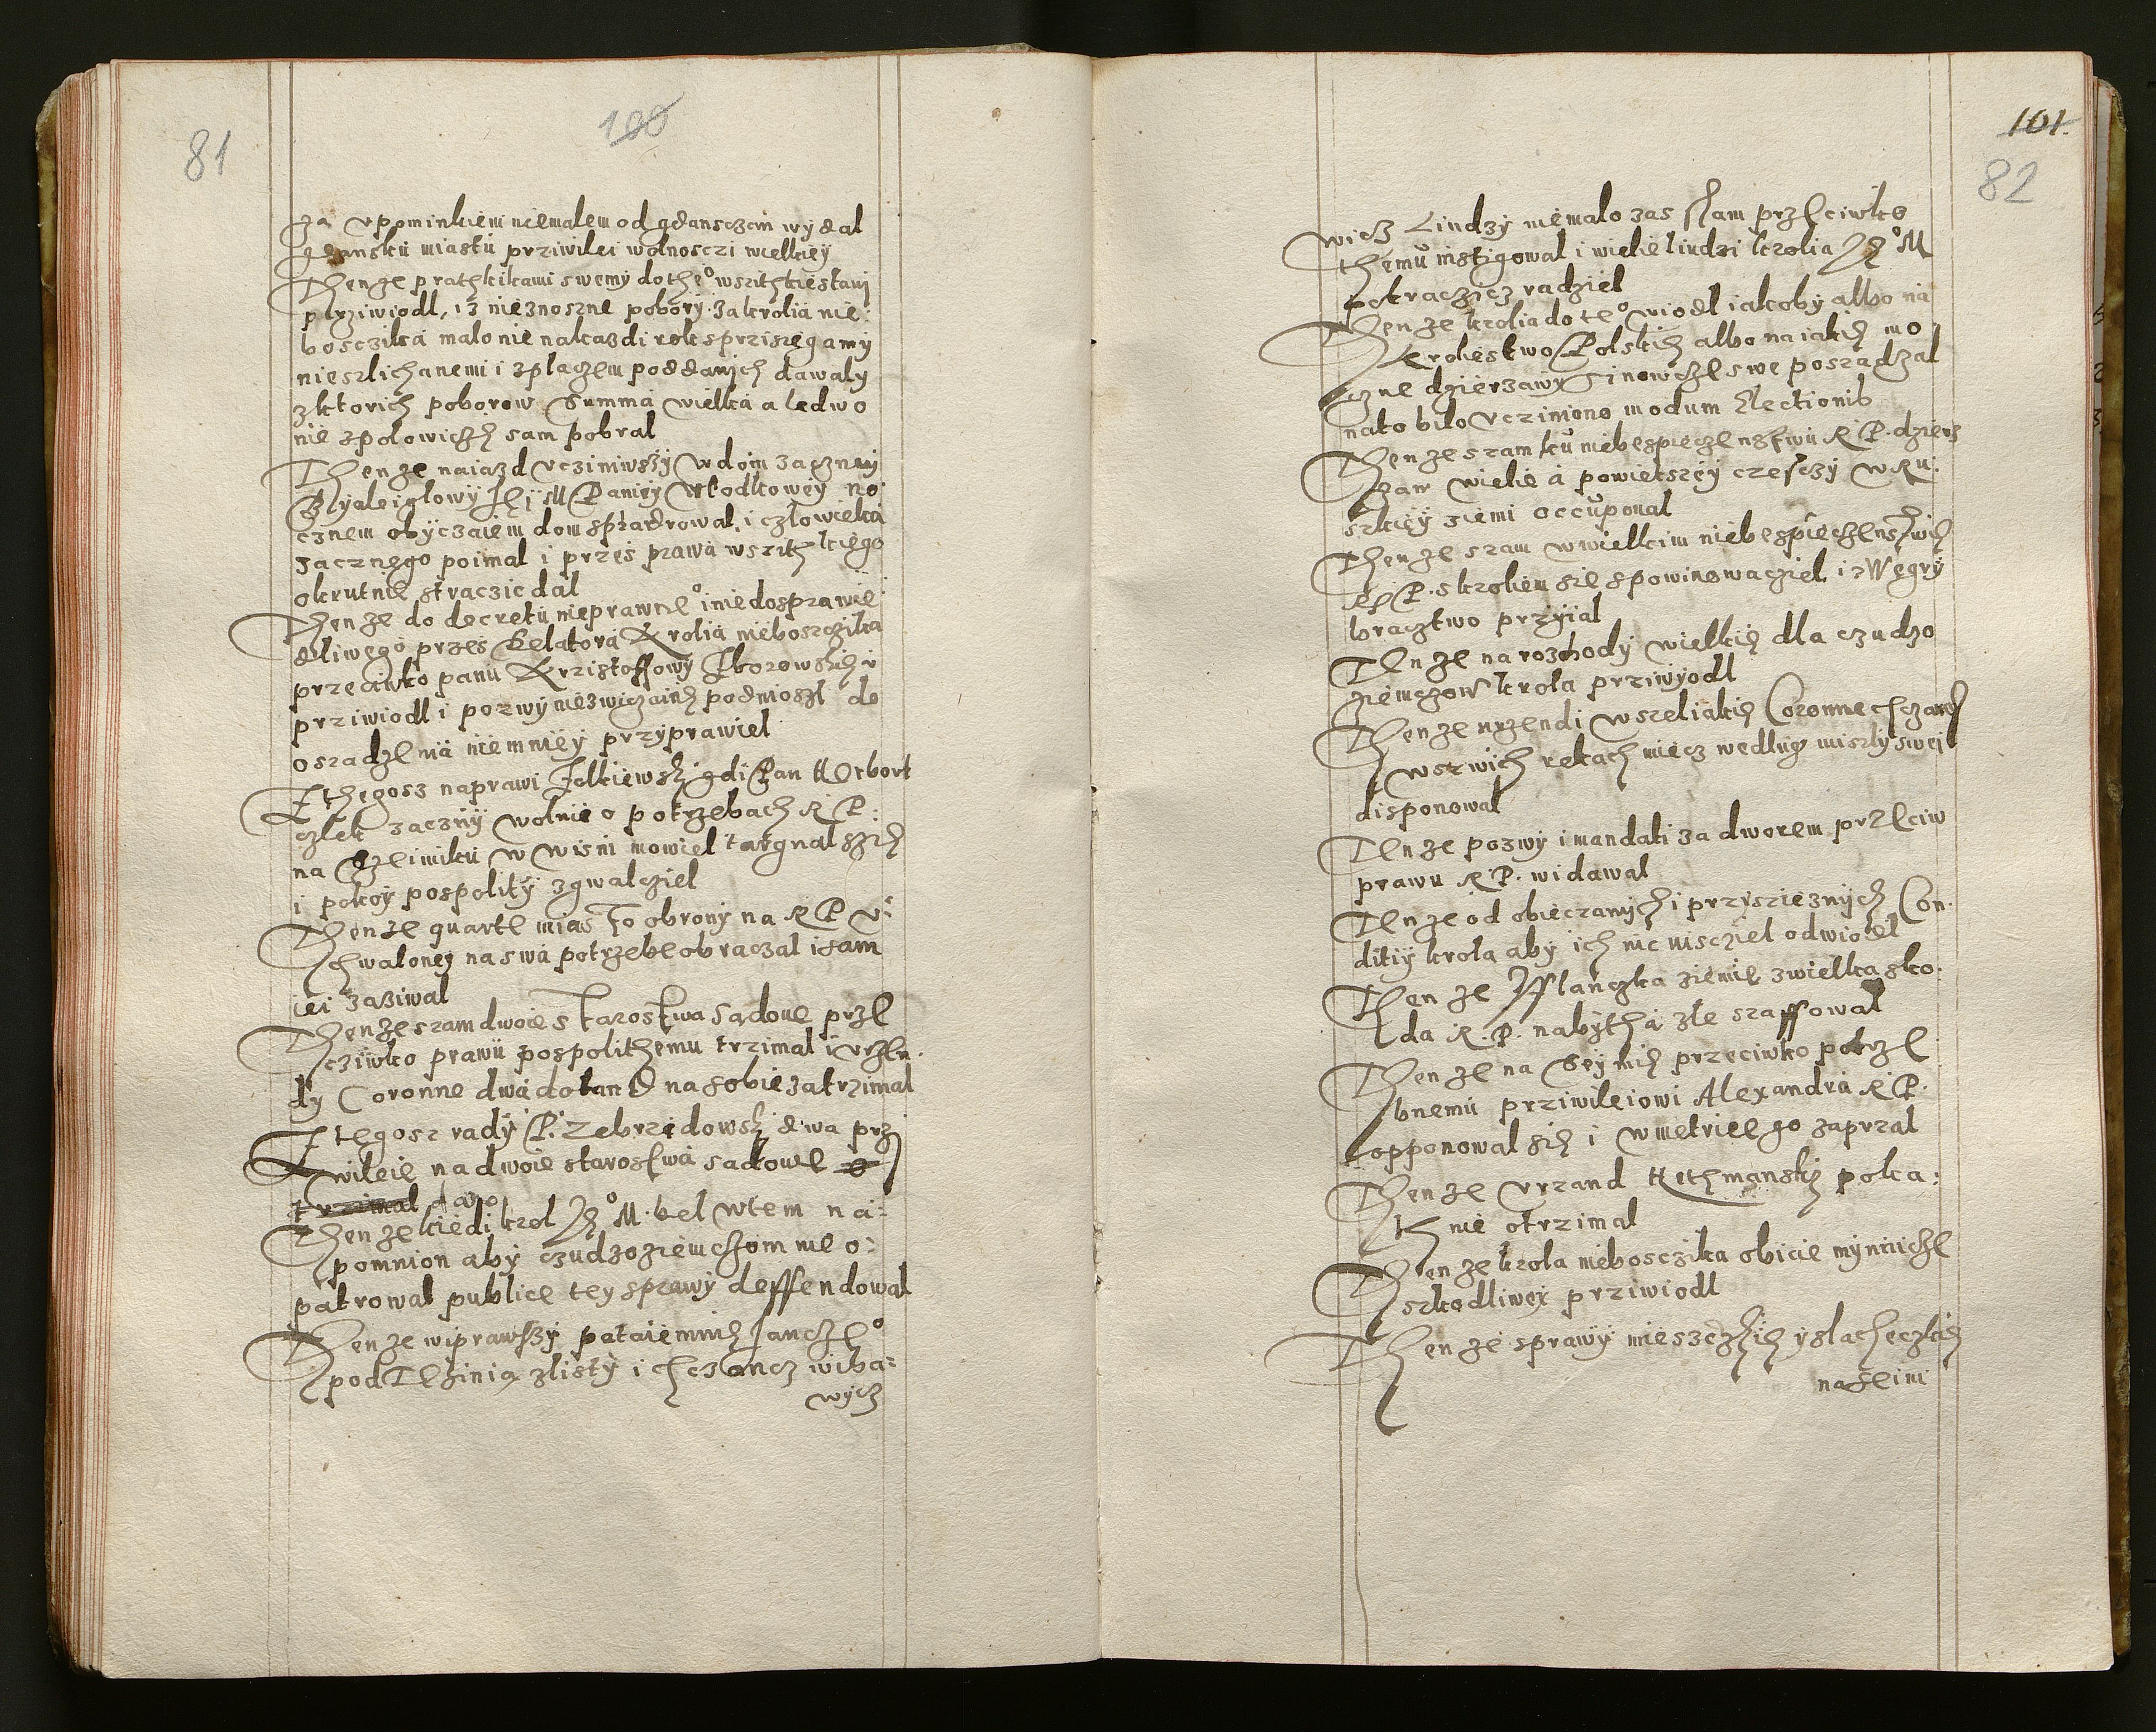 81
100
za upominkiem niemalem od gdansczan wydal
gdansku miastu przivilei wolnosczi wielkiey
Thenze prathkikami swemy do the° wszithkie stany
przÿwiodl, iz nieznoszne pobory za krolia nie:
bosczika malo nie na kazdi rok sprzisięgamy
nieszlichanemi i z placzem poddanich dawaly
z ktorich poborow Summa wielka a ledwo
nie z polowiczÿ sam pobral
Thenze naiazd ucziniwszy w dom zacznei
Byaleiglowÿ Jeÿ M Paniey Wlodkowey no
cznem obyczaiem dom spladrowal, i czlowieka
zacznego poimal i przes prawa wszithkiego
okrutnie straczic dal
Thenze do decretu nieprawne° i niedosprawie
dliwego przes Delatora Krolia nieboszczika
przeciwko panu Krzistoffowy Zborowskiemu
prziwiodl i pozwy niezwiczaine podnioszl do
oszadzenia niemniey przyprawiel
Z thegosz naprawi Zolkiewsky gdi Pan Herbort
czlek zacznÿ wolnie o potrzebach R P:
na Szeimiku w Wisni mowiel targnal szie
i pokoy pospolitÿ zgwalcziel
Thenze quarte miasto obronÿ na R P u:
chwaloney na swa potrzebe obraczal i sam
iei zaziwal
Thenze szam dwoie starostwa sądowe prze
cziwko prawu pospolithemu trzimal i urzen.
dy Coronne dwa dotand na sobie zatrzimal
Z tegosz radÿ P. Zebrzidowsky dwa prz
wileie na dwoie starostwa sadowe
trzimal
Thenze kiedi krol Je° M. bel w tem na:
pomnion aby czudzoziemczom nie o:
patrowal publice tey sprawÿ deffendowal
Thenze wiprawszÿ potaiemnie Jancze°
pod Tezinia z listÿ i chczancz wiba=
wycz

101.
82
wicz Liudzÿ niemalo zas sam przeciwko
themu instigowal i wielie liudzi krolia Je° M
potracziez radziel
Thenze krolia do te° wiodl iakoby albo na
Krolestwo Polskie albo na iakie mo
czne dzierzawy Sinowcze swe poszadzal
na to bilo ucziniono modum Electionis
Thenze szam ku niebespieczenstwu R P. dzierz
zaw wielie a powietszeÿ czesczy w Ru:
szkieÿ ziemi occupowal
Thenze szam w wielkim niebespieczenstwie
R P. s krolem sie spowinowacziel i z Węgrÿ
bracztwo przÿial
Tenze na rozchodÿ wielkie dla czudzo
ziemczow krola prziwÿodl
Thenze urzendi wszeliakie Coronne chczancz
w szwich rekach miecz wedlug miszly swei
disponowal
Tenze pozwy i mandati za dworem przeciw
prawu R P. widawal
Tenze od obieczanÿch i przisziezných Con.
ditiÿ krola aby ich nic nisciziel odwiodl
Thenze Ifflanczka ziemie z wielka sko.
da R. P. nabytha zle szaffowal
Thenze na Seymie przeciwko potrze
bnemu prziwileiowi Alexandra R P.
opponowal sie i w metrice go zaprzal
Thenze urzand Hethmansky poka:
th nie otrzimal
Thenze krola nieboscziká obicie mÿnnicze
szkodliwey prziwiodl
Thenze sprawÿ mieszczkie ÿ slacheczkie
na seimi